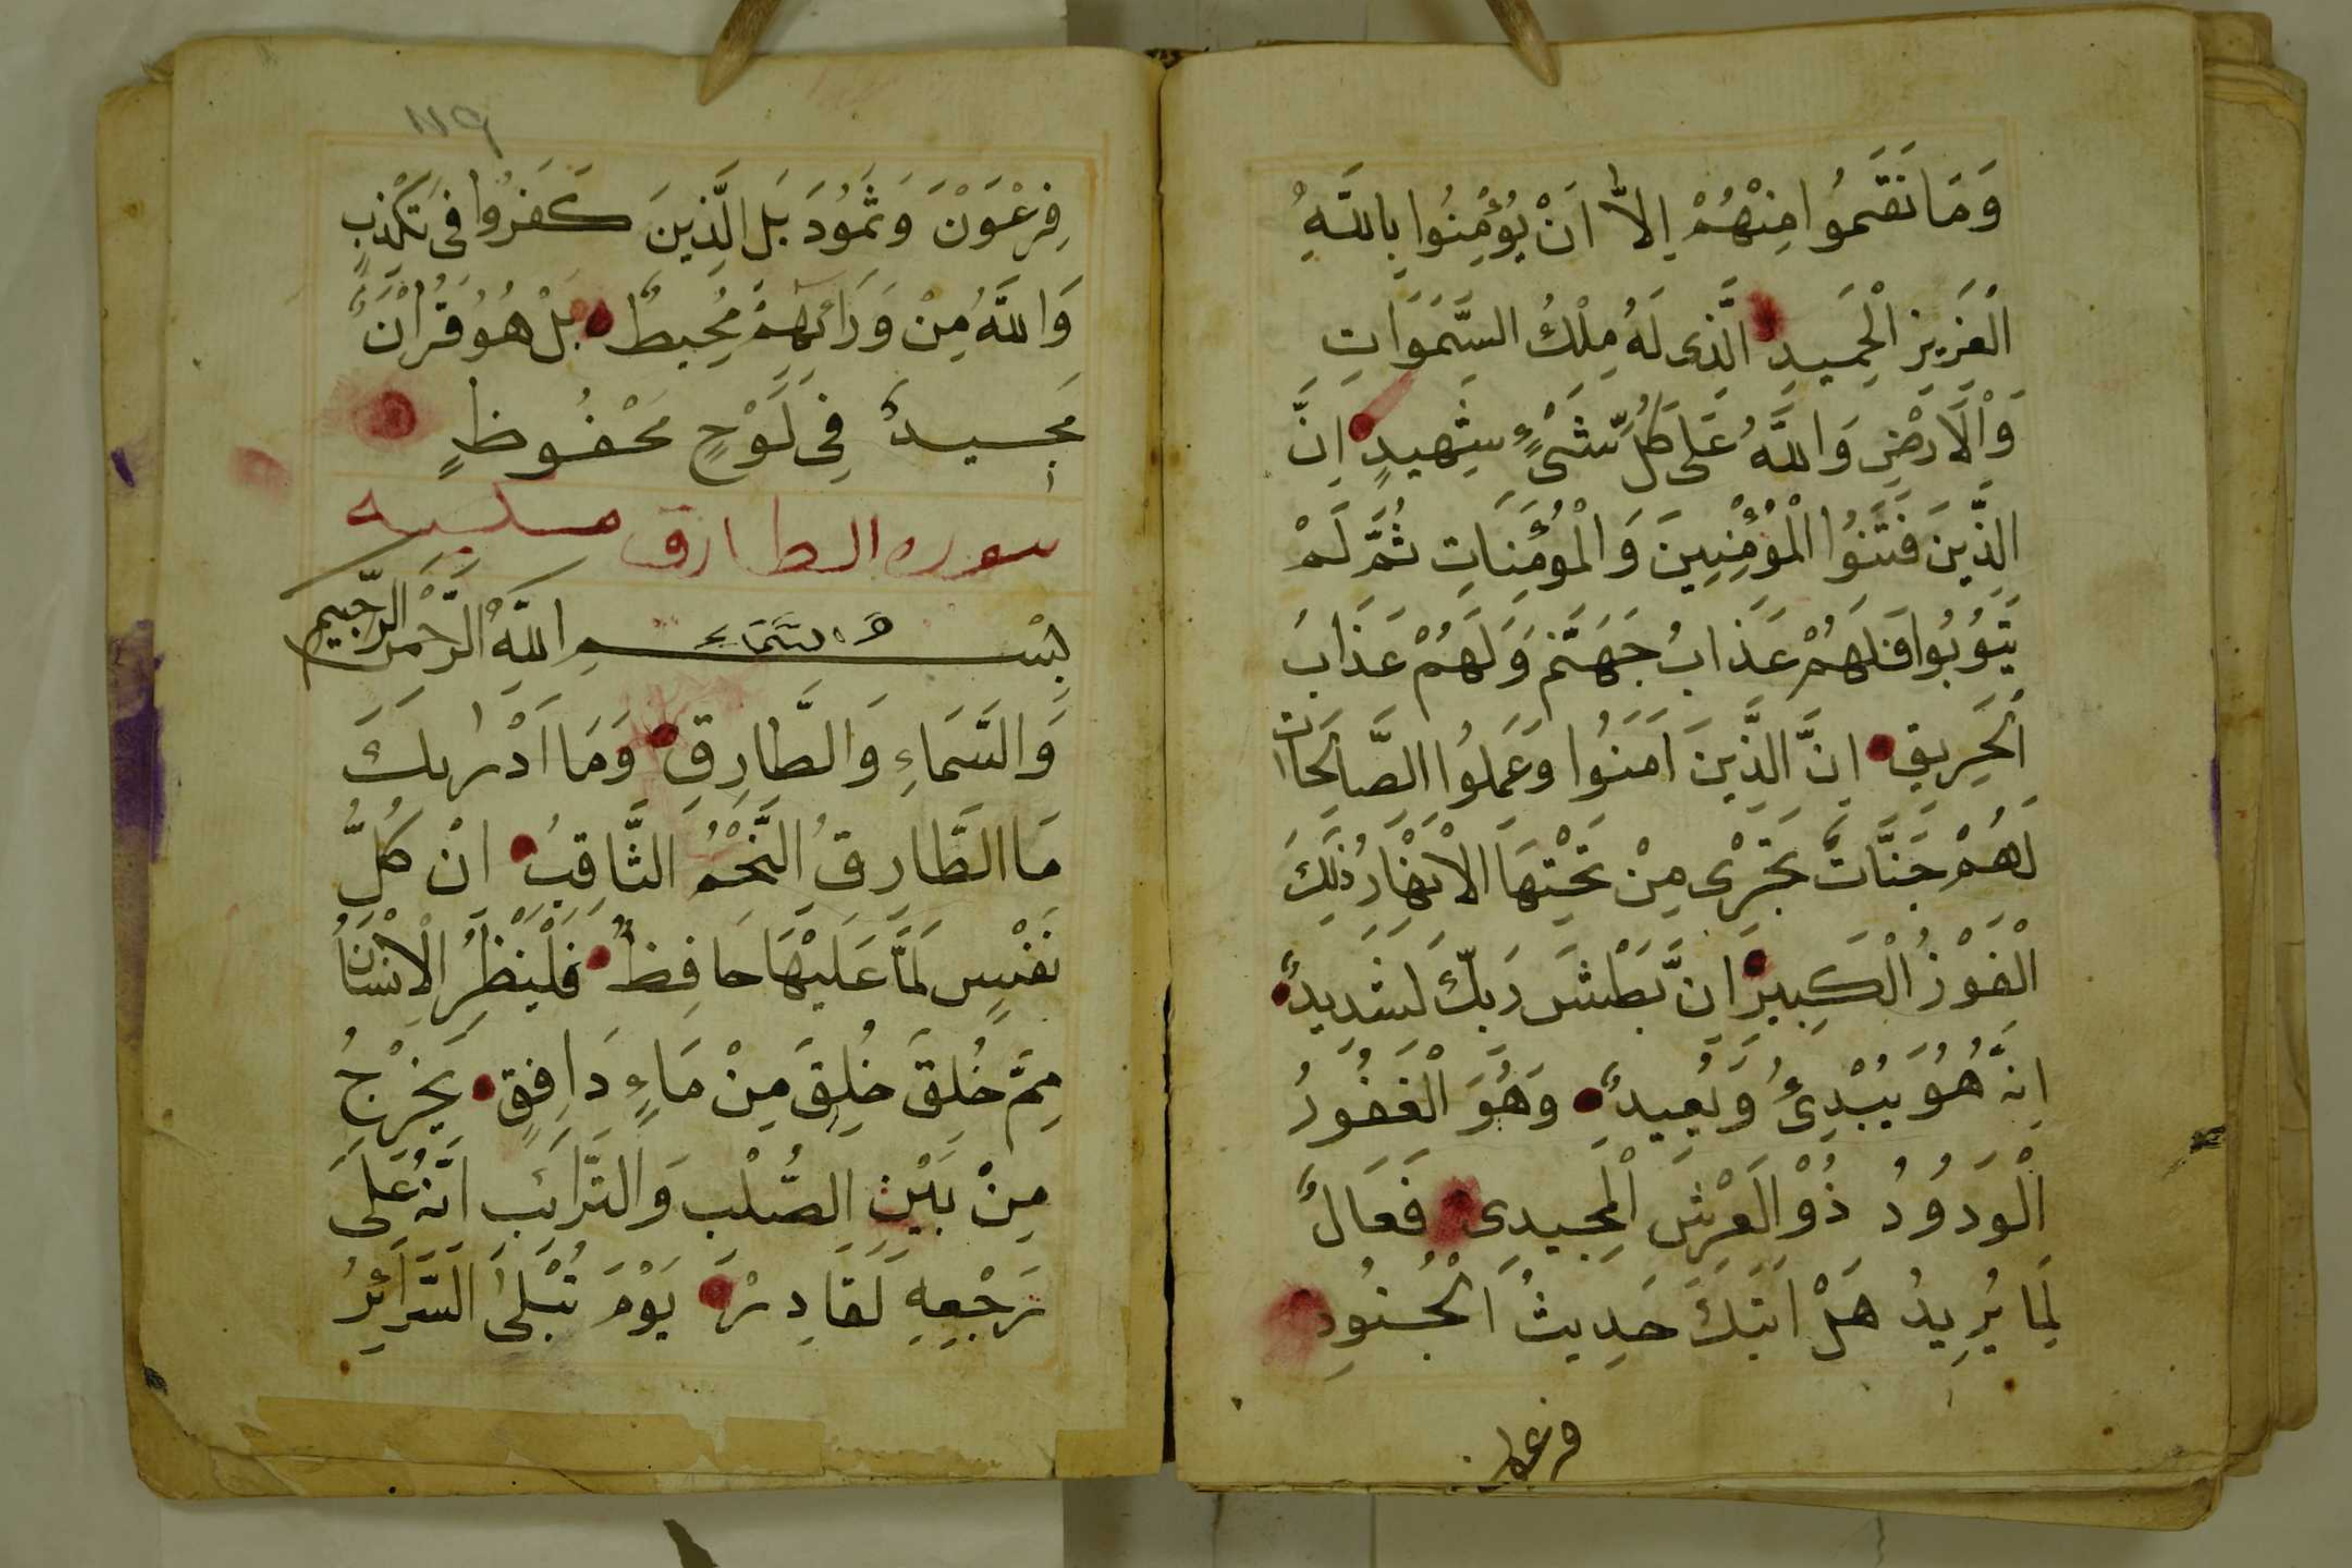 وَمَا نَقَمُوا مِنْهُمْ اِلاَّ اَنْ يُؤْمِنُوا بِاللَّهِ
الْعَزِيزِ الْحَمِيدِ الَّذِى لَهُ مُلْكُ السَّمَوَاتِ
وَالْاَرْضِ وَاللَّهُ عَلَى كُلِّ شَىْءٍ شَهِيدٍ اِنَّ
الَّذِينَ فَتَنُوا الْمُؤْمِنِينَ وَالْمُؤْمِنَاتِ ثُمَّ لَمْ
يَتُوبُوا فَلَهُمْ عَذَابُ جَهَنَّمَ وَلَهُمْ عَذَابُ
الْحَرِيقِ اِنَّ الَّذِينَ اَمَنُوا وَعَمِلُوا الصَّالِحَاتِ
لَهُمْ جَنَّاتٌ تَجْرِى مِنْ تَحْتِهَا الْاَنْهَارُ ذَلِكَ
الْفَوْزُ الْكَبِيرُ اِنَّ بَطْشَ رَبِّكَ لَشَدِيدٌ
اِنَّهُ هُوَ يُبْدِئُ وَيُعِيدُ وَهُوَ الْغَفُورُ
الْوَدُودُ ذُوْالْعَرْشِ الْمَجِيدِى فَعَالٌ
لِمَا يُرِيدُ هَلْ اَتَيكَ حَدِيثُ الْجُنُودِ
فرعون
١١٩
فِرْعَوْنَ وَثَمُودَ بَلِ الَّذِينَ كَفَرُوا فِى تَكْذِبٍ
وَاللَّهُ مِنْ وَرَائِهِمْ مُحِيطٌ بَلْ هُوَ قُرْاَنٌ
مَجِيدٌ فِى لَوْحٍ مَحْفُوظٍ
سوره الطارق مكيه
بِسْمِ اللَّهِ الرَّحْمَنِ الرَّحِيمِ
وَالسَّمَاءِ
وَالسَّمَاءِ وَالطَّارِقِ وَمَا اَدْرَيكَ
مَا الطَّارِقُ النَّجْمُ الثَّاقِبُ اِنْ كُلُّ
نَفْسٍ لَمَّا عَلَيْهَا حَافِظٌ فَلْيَنْظُرِ الْاِنْسَانُ
مِمَّ خُلِقَ خُلِقَ مِنْ مَاءٍ دَافِقٍ يَخْرُجُ
مِنْ بَيْنِ الصُّلْبِ وَالتَّرَائِبِ اِنَّهُ عَلَى
رَجْعِهِ لَقَادِرٌ يَوْمَ تُبْلَى السَّرَائِرُ